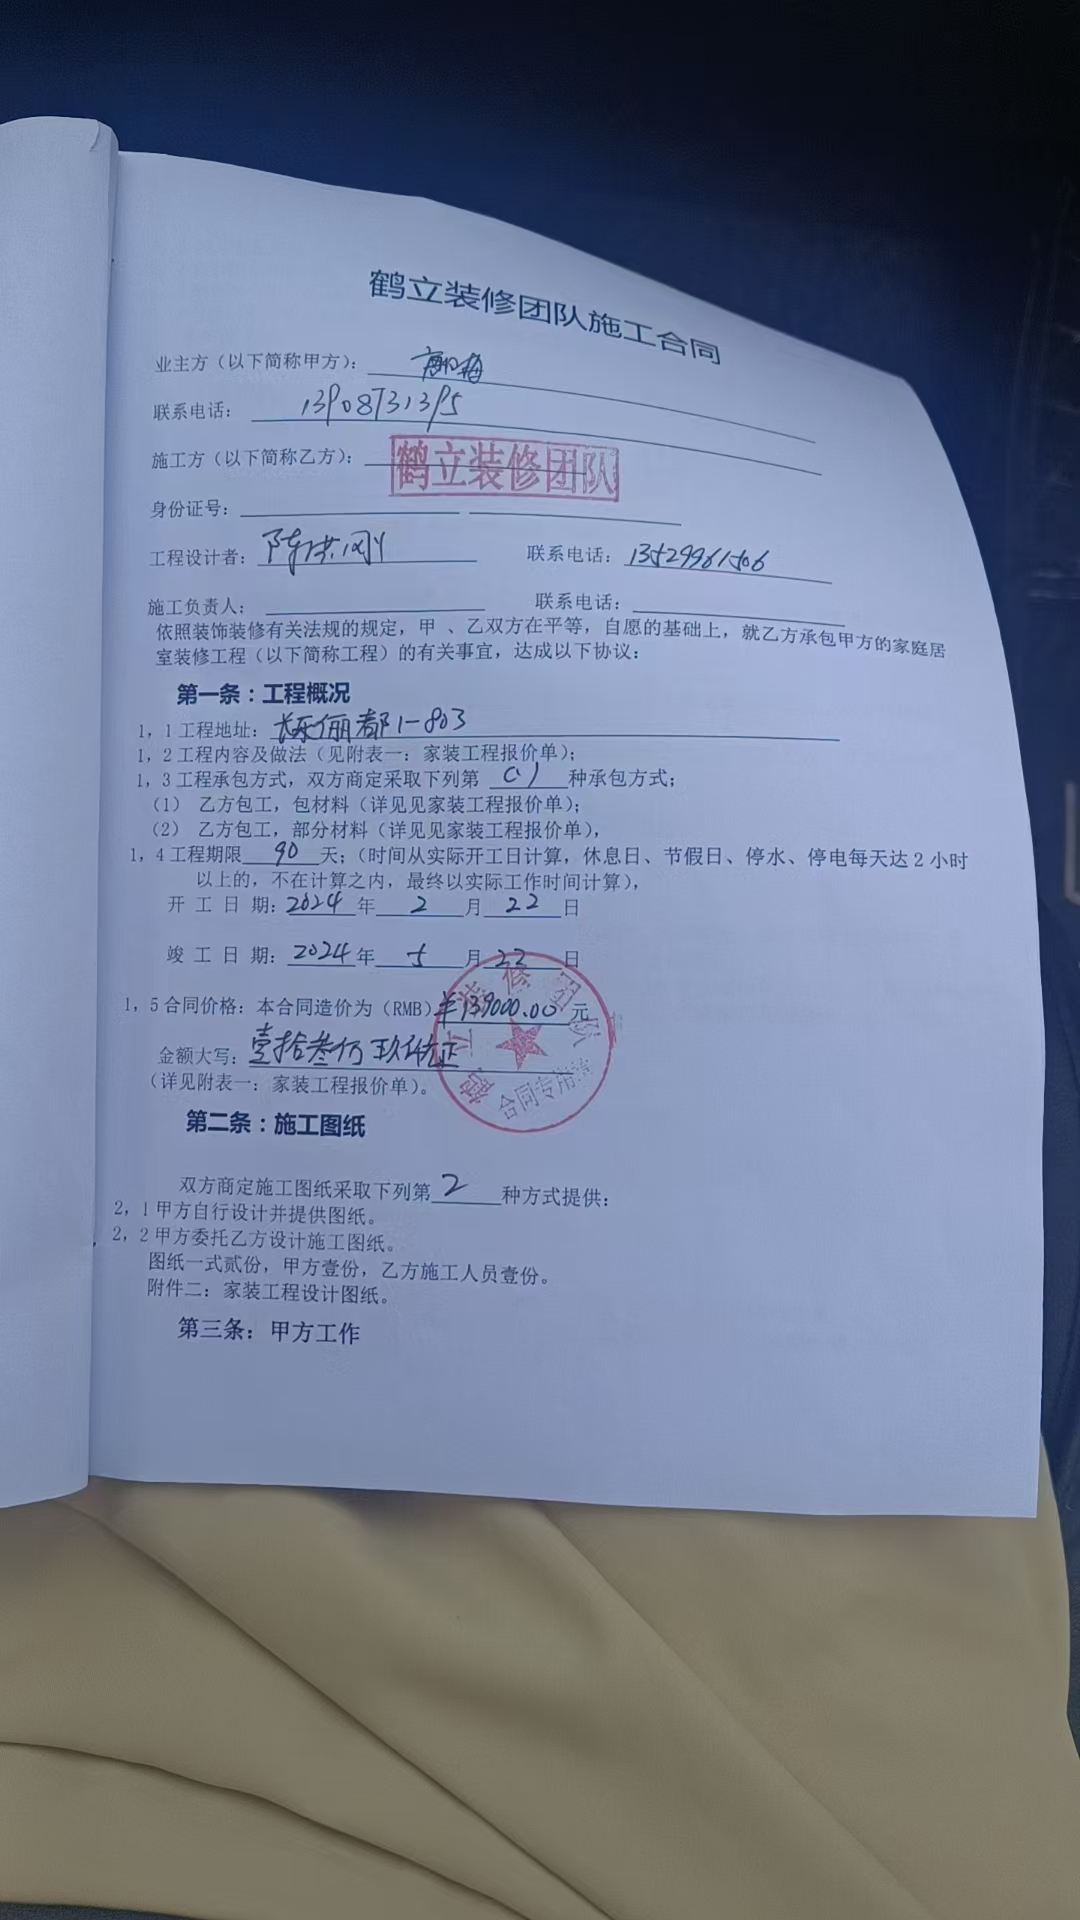 鹤立装修团队施工合同
业主方（以下简称甲方）：
联系电话： 13908731395
施工方（以下简称乙方）： 鹤立装修团队
身份证号：
工程设计者： 陈洪刚 联系电话： 13529961506
施工负责人： 联系电话：
依照装饰装修有关法规的规定，甲 、乙双方在平等，自愿的基础上，就乙方承包甲方的家庭居
室装修工程（以下简称工程）的有关事宜，达成以下协议：
第一条：工程概况
1，1工程地址： 俪都1-803
1，2工程内容及做法（见附表一：家装工程报价单）；
1，3工程承包方式，双方商定采取下列第 (1) 种承包方式；
（1） 乙方包工，包材料（详见见家装工程报价单）；
（2） 乙方包工，部分材料（详见见家装工程报价单），
1，4工程期限 90 天；（时间从实际开工日计算，休息日、节假日、停水、停电每天达2小时
以上的，不在计算之内，最终以实际工作时间计算），
开 工 日 期：2024 年 2 月 22 日
竣 工 日 期：2024 年 5 月 22 日
1，5合同价格：本合同造价为（RMB）￥139000.00 元
金额大写：壹拾叁万玖仟元正
（详见附表一：家装工程报价单）。
鹤立装修团队
合同专用章
第二条：施工图纸
双方商定施工图纸采取下列第 2 种方式提供：
2，1甲方自行设计并提供图纸。
2，2甲方委托乙方设计施工图纸。
图纸一式贰份，甲方壹份，乙方施工人员壹份。
附件二：家装工程设计图纸。
第三条：甲方工作